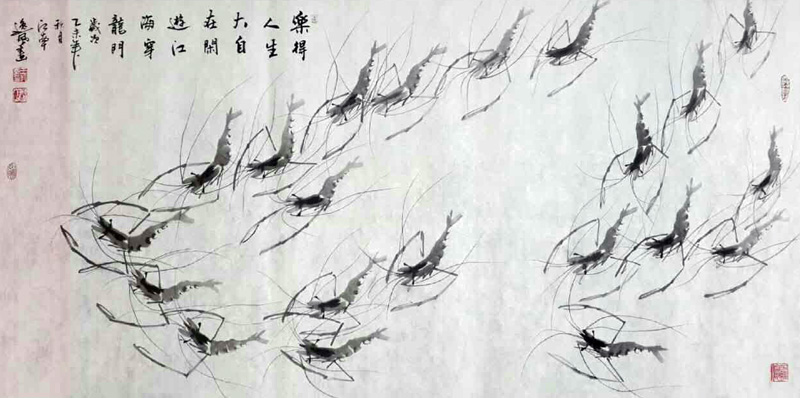 樂得
人生
大自
在閑
遊江
海穿
龍門
歲次
乙未年
秋月